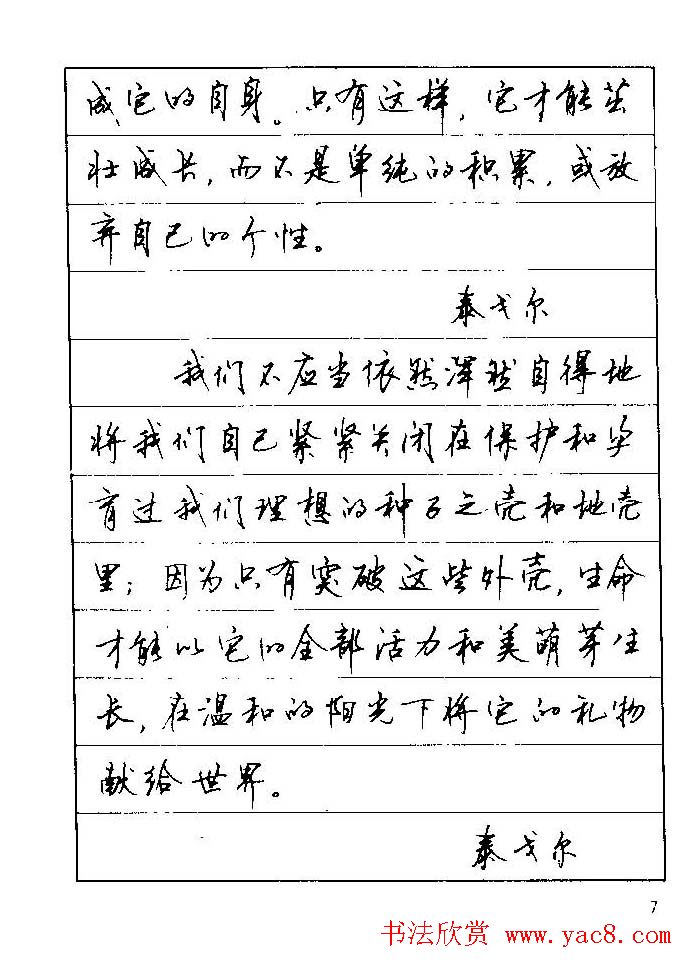 成它的自身。只有这样，它才能茁
壮成长，而不是单纯的积累，或放
弃自己的个性。
泰戈尔
我们不应当依然浑然自得地
将我们自己紧紧关闭在保护和孕
育过我们理想的种子之壳和地壳
里；因为只有突破这些外壳，生命
才能以它的全部活力和美萌芽生
长，在温和的阳光下将它的礼物
献给世界。
泰戈尔
7
书法欣赏 www.yac8.com